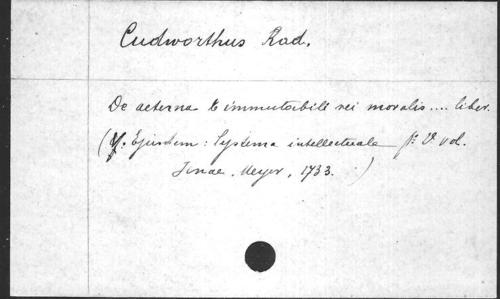 Cudworthus Rad.
De aeterna & immutabili rei moralis .... liber.
(Ejusdem: Systema intellectuale f: V. vol.
Jenae, Meyer, 1733.)